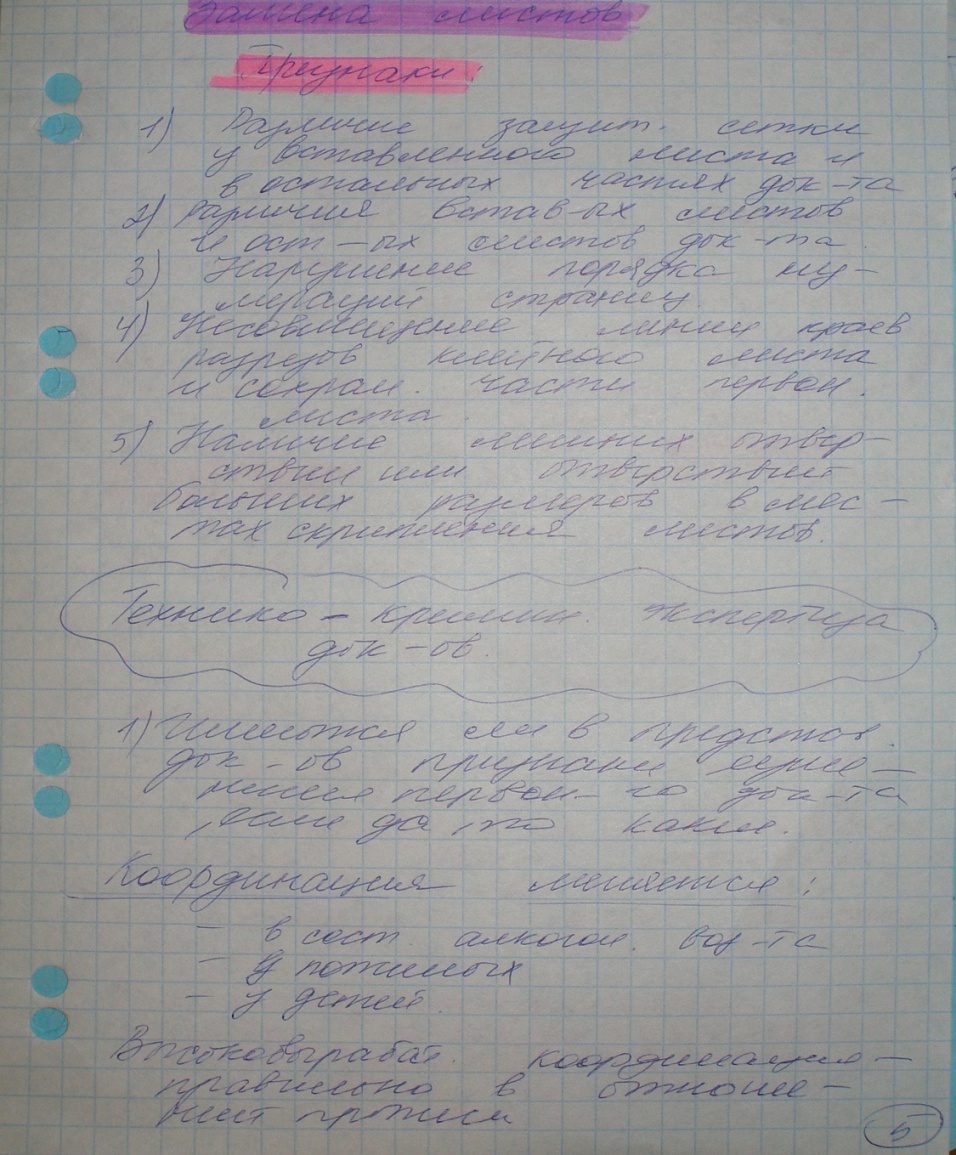 Замена листов
Признаки:
1) Различие защит. сетки
у вставленного листа и
в остальных частях док-та
2) Различия встав-ых листов
и ост-ых листов док-та.
3) Нарушение порядка ну-
мерации страниц.
4) Несовмещение линии краев
разрезов клейного листа
и сохран. части первон.
листа.
5) Наличие лишних отвер-
ствий или отверствий
больших размеров в мес-
тах скрипления листов.
Технико-кримин. экспертиза
док-ов.
1) Имеются ли в представ.
док-ов признаки
первон-го док-та
, если да, то какие.
Координация меняется:
- в сост. алкогол. воз-та
- у пожилых
- у детей
Высоковырабат. координация -
правильно в отноше-
нии прописи
5